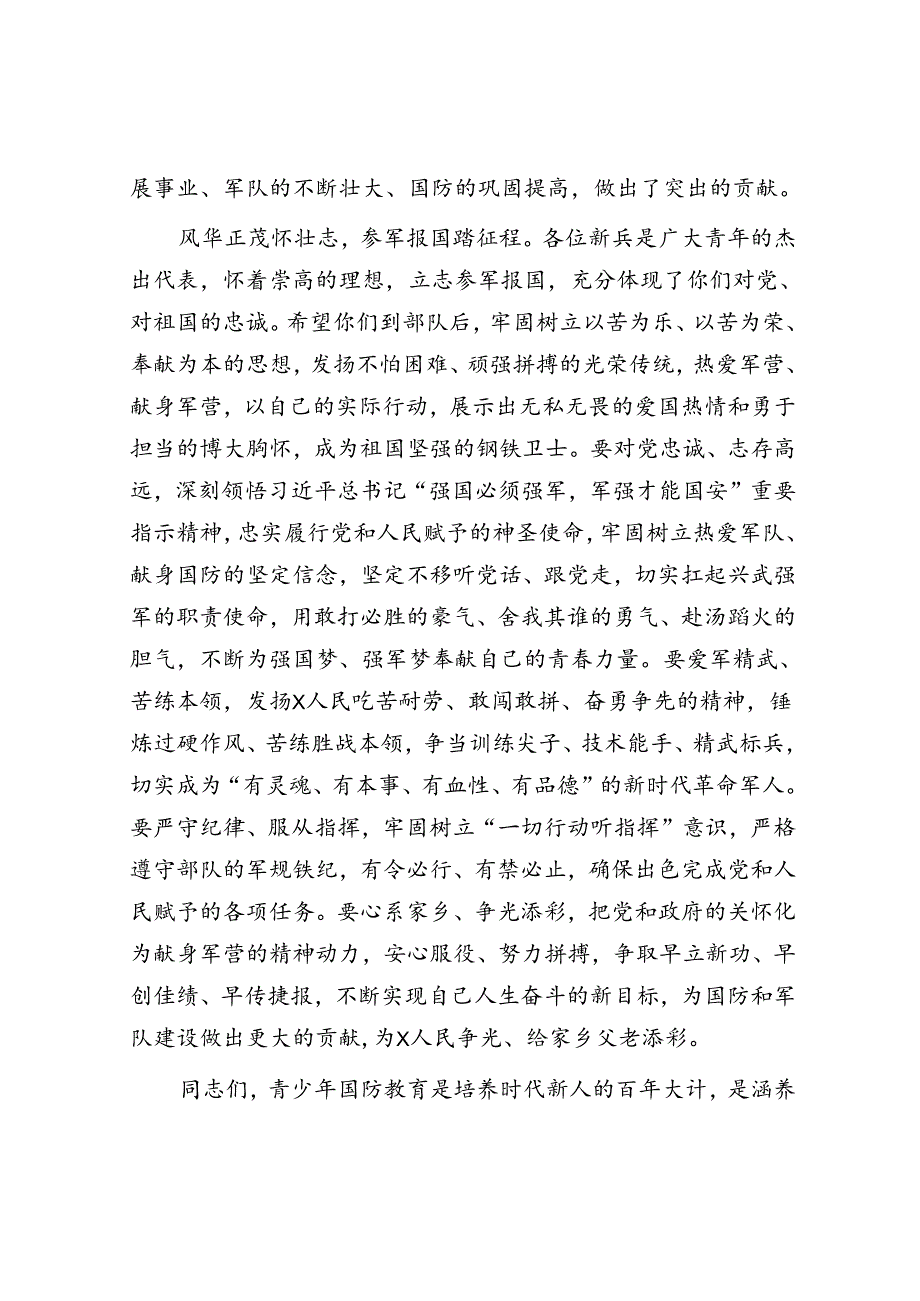 展事业、军队的不断壮大、国防的巩固提高，做出了突出的贡献。
风华正茂怀壮志，参军报国踏征程。各位新兵是广大青年的杰
出代表，怀着崇高的理想，立志参军报国，充分体现了你们对党、
对祖国的忠诚。希望你们到部队后，牢固树立以苦为乐、以苦为荣、
奉献为本的思想，发扬不怕困难、顽强拼搏的光荣传统，热爱军营、
献身军营，以自己的实际行动，展示出无私无畏的爱国热情和勇于
担当的博大胸怀，成为祖国坚强的钢铁卫士。要对党忠诚、志存高
远，深刻领悟习近平总书记“强国必须强军，军强才能国安”重要
指示精神，忠实履行党和人民赋予的神圣使命，牢固树立热爱军队、
献身国防的坚定信念，坚定不移听党话、跟党走，切实扛起兴武强
军的职责使命，用敢打必胜的豪气、舍我其谁的勇气、赴汤蹈火的
胆气，不断为强国梦、强军梦奉献自己的青春力量。要爱军精武、
苦练本领，发扬X人民吃苦耐劳、敢闯敢拼、奋勇争先的精神，锤
炼过硬作风、苦练胜战本领，争当训练尖子、技术能手、精武标兵，
切实成为“有灵魂、有本事、有血性、有品德”的新时代革命军人。
要严守纪律、服从指挥，牢固树立“一切行动听指挥”意识，严格
遵守部队的军规铁纪，有令必行、有禁必止，确保出色完成党和人
民赋予的各项任务。要心系家乡、争光添彩，把党和政府的关怀化
为献身军营的精神动力，安心服役、努力拼搏，争取早立新功、早
创佳绩、早传捷报，不断实现自己人生奋斗的新目标，为国防和军
队建设做出更大的贡献，为X人民争光、给家乡父老添彩。
同志们，青少年国防教育是培养时代新人的百年大计，是涵养